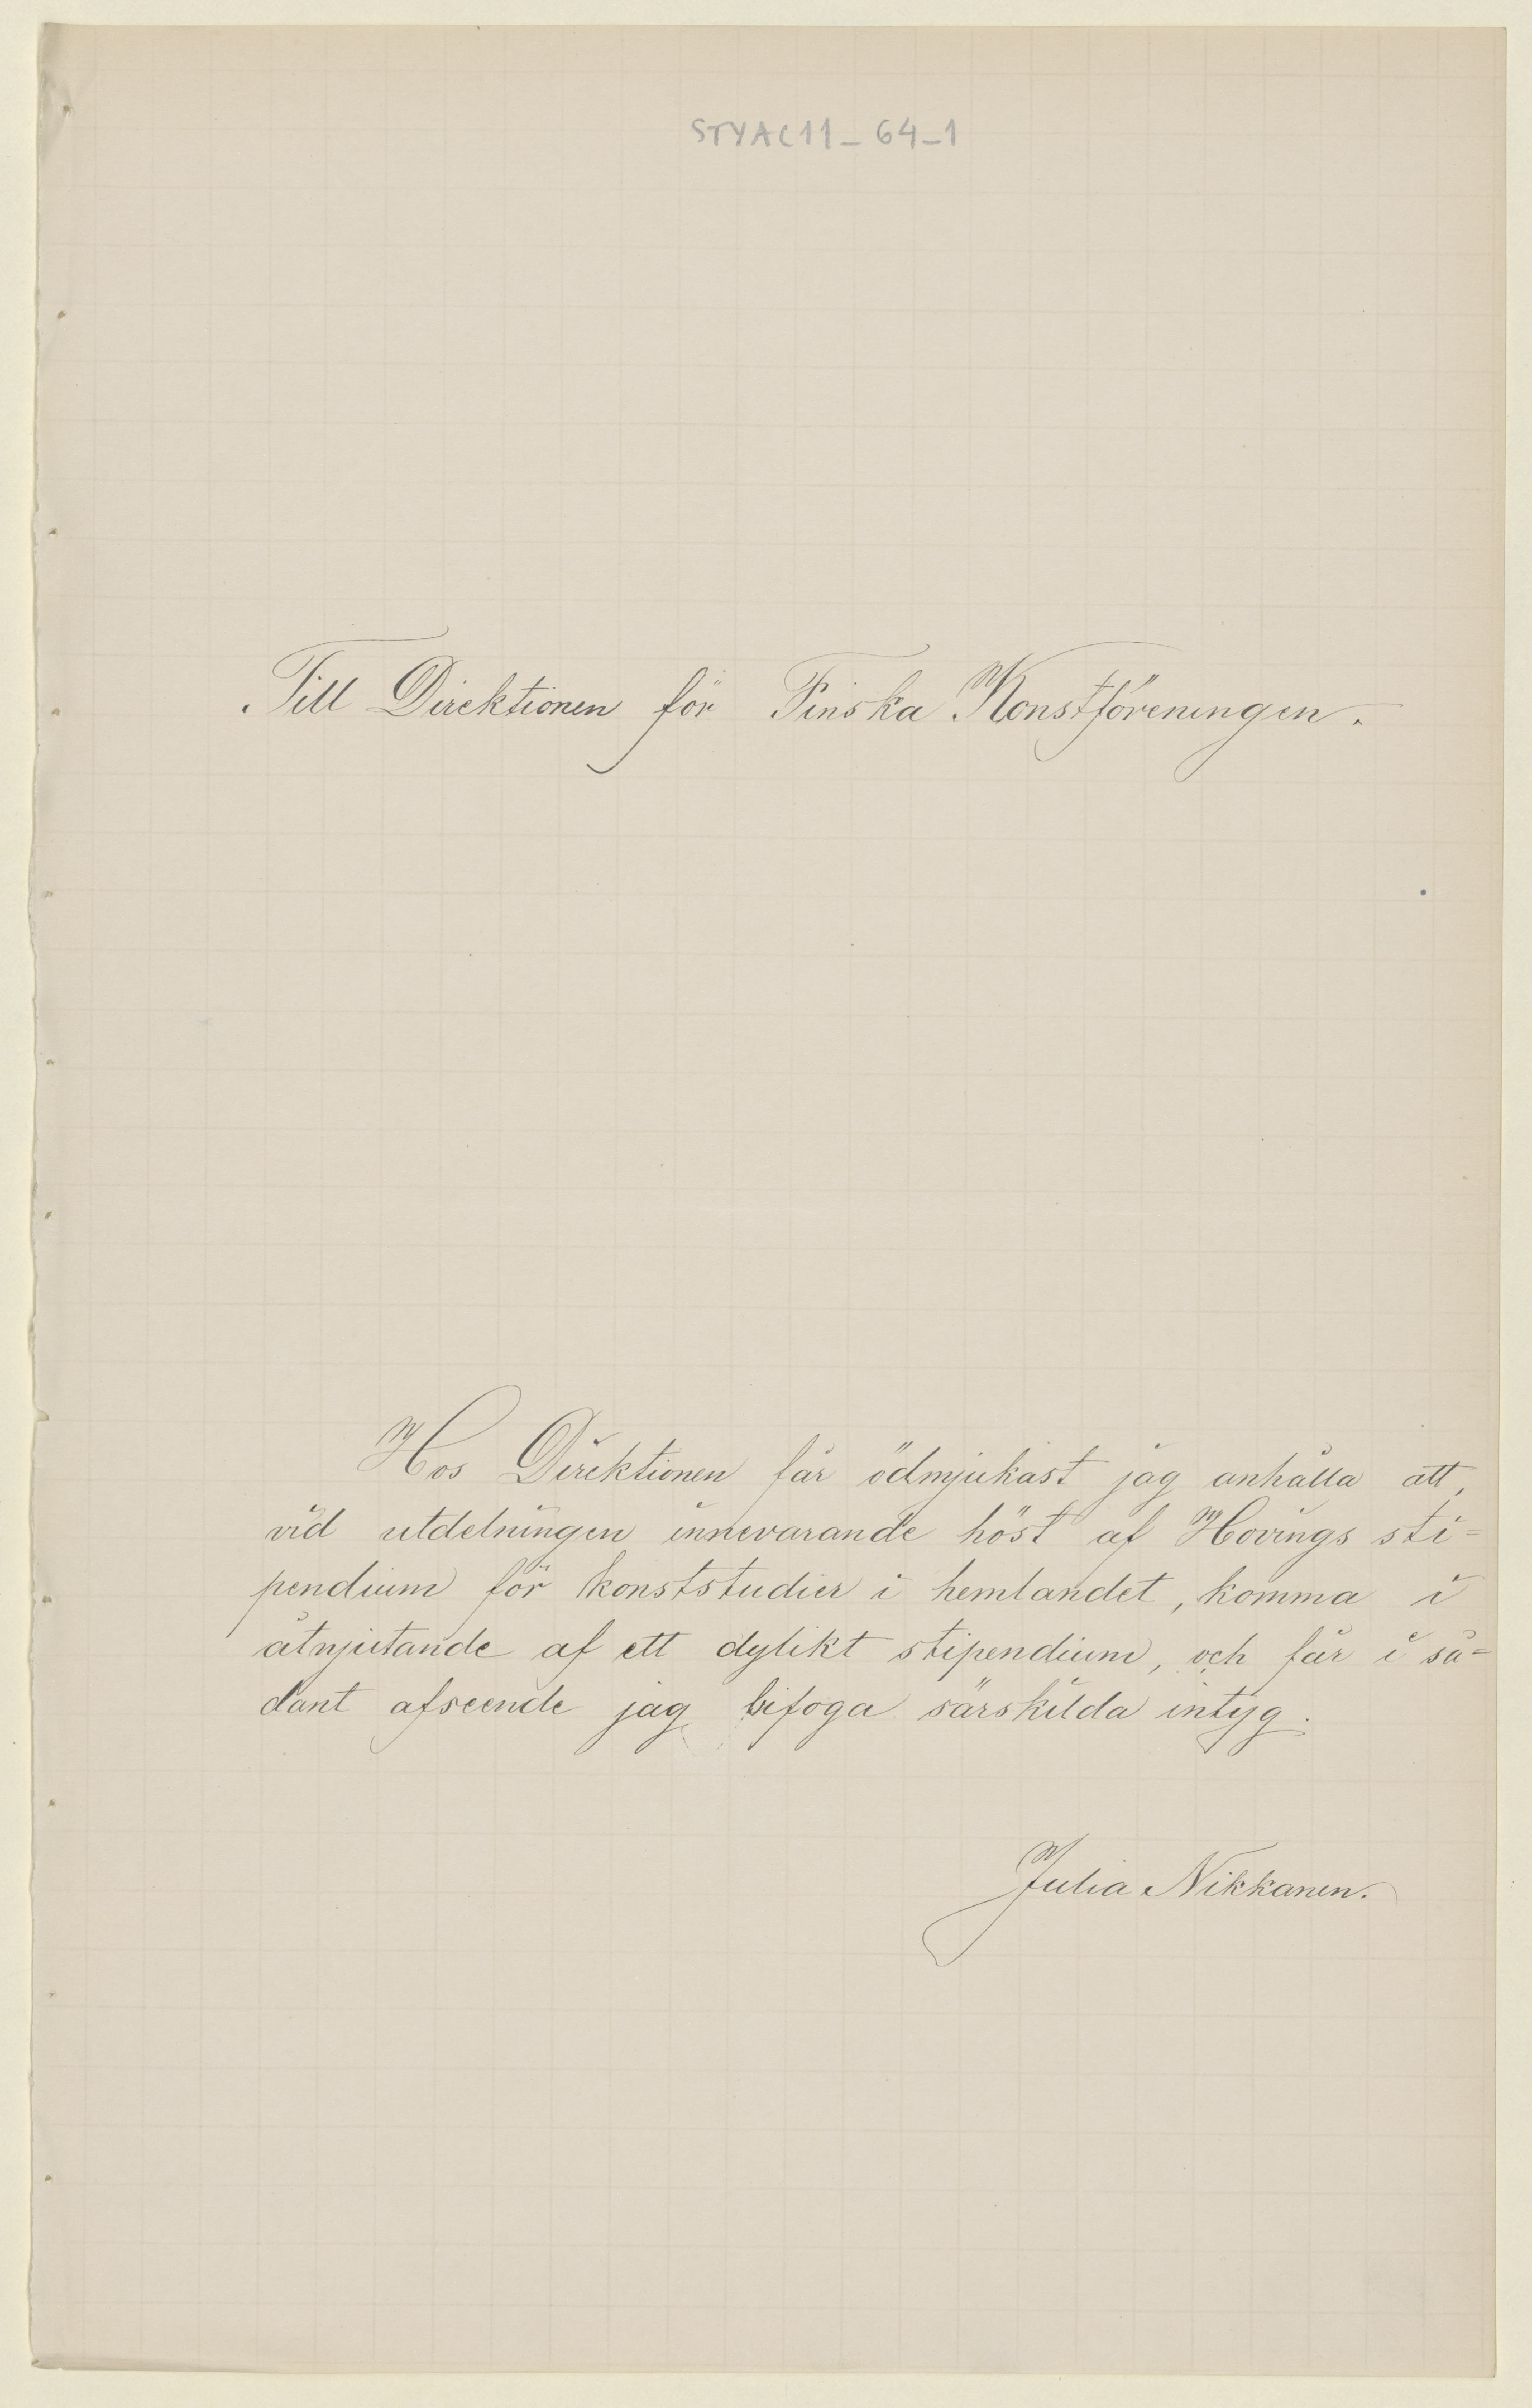 STYAC11_64_1
Till Direktionen för Finska Konstföreningen.
Hos Direktionen får ödmjukast jag anhålla att,
vid utdelningen innevarande höst af Hovings sti=
pendium för konststudier i hemlandet, komma i
åtnjutande af ett dylikt stipendium, och får i så=
dant afseende jag bifoga särskilda intyg.
Julia Nikkanen.